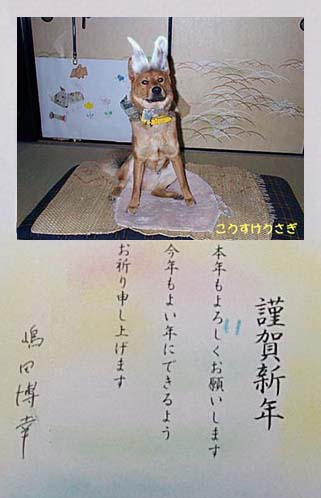 こうすけうさぎ
謹賀新年
本年もよろしくお願いします
今年もよい年にできるよう
お祈り申し上げます
嶋田博幸